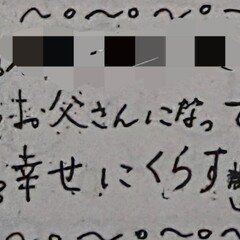 お父さんになって
幸せにくらす